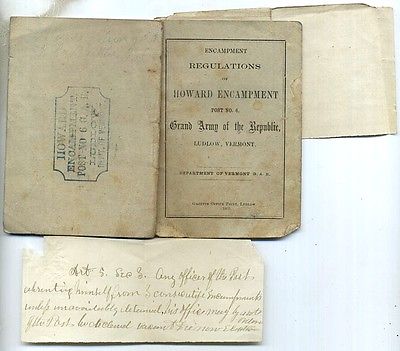 HOWARD
ENCAMPMENT
POST NO 6 G.
LUDLOW
ENCAMPMENT
REGULATIONS
OF
HOWARD ENCAMPMENT
POST NO. 6,
Grand Army of the Republic,
LUDLOW, VERMONT.
DEPARTMENT OF VERMONT G. A. R.
GAZETTE OFFICE PRINT, LUDLOW
Art 5. Sec 3. Any Officer of the Post
absenting himself from 3 consecutive encampments
unless unavoidably detained, his office may by vote
of the Post be declared vacant